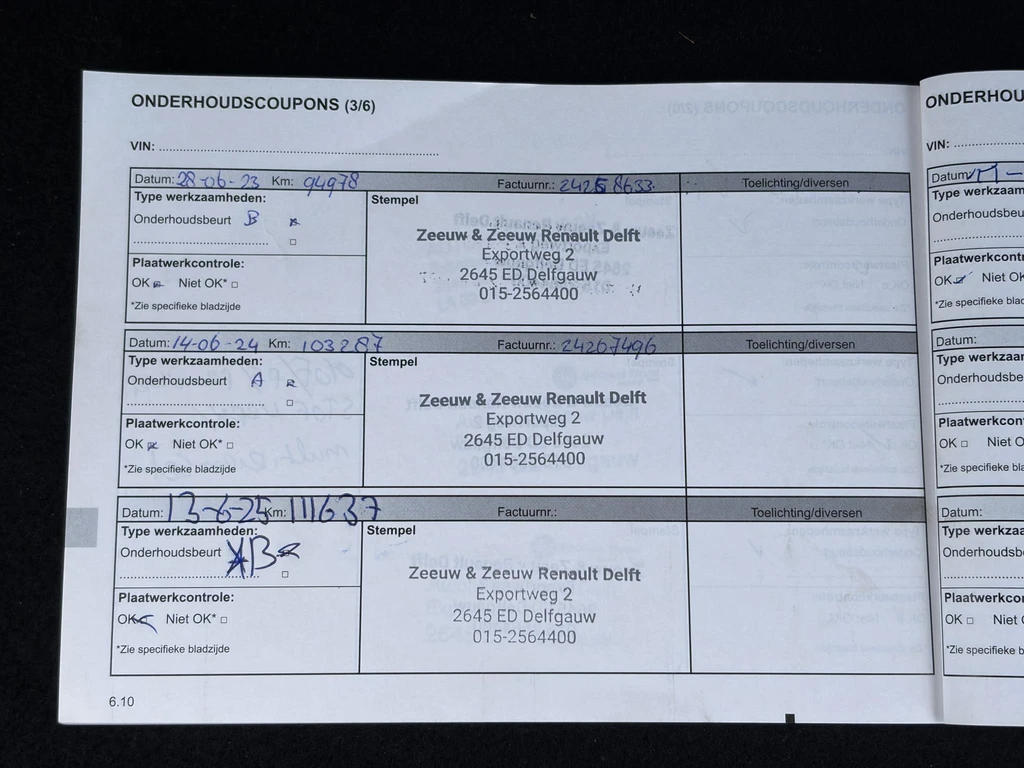 ONDERHOUDSCOUPONS (3/6)
VIN:
Datum: 28-06-23 Km: 94978 Factuurnr.: Toelichting/diversen
Type werkzaamheden:
Stempel
Onderhoudsbeurt B
Zeeuw & Zeeuw Renault Delft
Exportweg 2
2645 ED Delfgauw
015-2564400
Plaatwerkcontrole:
OK Niet OK*
*Zie specifieke bladzijde
Datum: 14-06-24 Km: 103287 Factuurnr.: 24267496 Toelichting/diversen
Type werkzaamheden:
Stempel
Onderhoudsbeurt A
Zeeuw & Zeeuw Renault Delft
Exportweg 2
2645 ED Delfgauw
015-2564400
Plaatwerkcontrole:
OK Niet OK*
*Zie specifieke bladzijde
Datum: 13-6-25 Km: 111637 Factuurnr.: Toelichting/diversen
Type werkzaamheden:
Stempel
Onderhoudsbeurt B
Zeeuw & Zeeuw Renault Delft
Exportweg 2
2645 ED Delfgauw
015-2564400
Plaatwerkcontrole:
OK Niet OK*
*Zie specifieke bladzijde
6.10
ONDERHOU
VIN:
Datum
Type werkzaam
Onderhoudsbeu
Plaatwerkcont
OK Niet O
*Zie specifieke blad
Datum:
Type werkzaa
Onderhoudsbe
Plaatwerkcon
OK Niet O
*Zie specifieke blad
Datum:
Type werkza
Onderhoudsb
Plaatwerkco
OK Niet
*Zie specifieke b